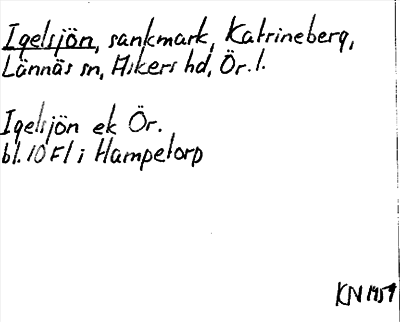 Igelsjön, sankmark, Katrineberg,
Lännäs sn, Askers hd, Ör. l.
Igelsjön ek Ör.
bl. 10 F1 i Hampetorp
KN 1959